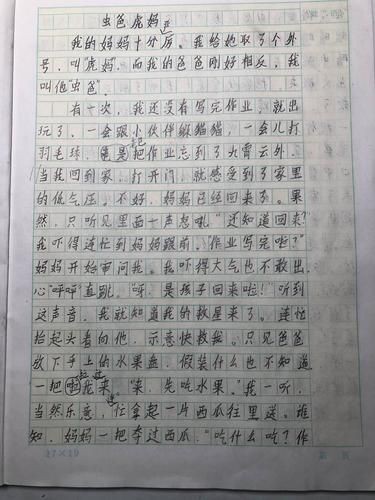 虫爸虎妈
我的妈妈十分厉。我给她取了个外
号，叫"虎妈"，而我的爸爸刚好相反，我
叫他"虫爸"。
有一次，我还没有写完作业，就出
玩了，一会跟小伙伴躲猫猫，一会儿打
羽毛球，把作业忘到了九霄云外，
当我回到家，打开门，就感受到了家里
的低气压。不好，妈妈已经回来了。果
然，只听见里面一声怒吼，"还知道回来？
我吓得连忙到妈妈跟前，"作业写完啦？"
妈妈开始审问我。我吓得大气也不敢出，
心"呼呼"直跳。"呀，是孩子回来啦！"听到
这声音，我就知道我的救星来了。连忙
抬起头看向他，示意快救我。只见爸爸
放下手上的水果盘，假装什么也不知道，
一把拉过我来，"来，先吃水果。"我一听，
当然乐意，忙拿起一片西瓜往里送。谁
知，妈妈一把夺过西瓜，"吃什么吃？作
17×19
第 页